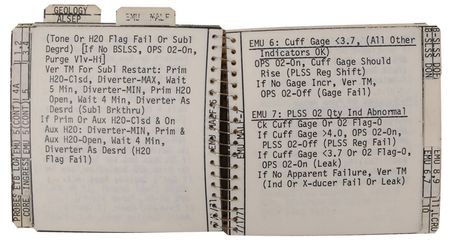 GEOLOGY
ALSEP
EMU MALF
(Tone Or H2O Flag Fail Or Subl
Degrd) [If No BSLSS, OPS O2-On,
Purge Vlv-Hi]
Ver TM For Subl Restart: Prim
H2O-Clsd, Diverter-MAX, Wait
5 Min, Diverter-MIN, Prim H2O
Open, Wait 4 Min, Diverter As
Desrd (Subl Brkthru)
If Prim Or Aux H2O-Clsd & On
Aux H2O: Diverter-MIN, Prim &
Aux H2O-Open, Wait 4 Min,
Diverter As Desrd (H2O
Flag Fail)
EMU 6: Cuff Gage <3.7, (All Other
Indicators OK)
OPS O2-On, Cuff Gage Should
Rise (PLSS Reg Shift)
If No Gage Incr, Ver TM,
OPS O2-Off (Gage Fail)
EMU 7: PLSS O2 Qty Ind Abnormal
Ck Cuff Gage Or O2 Flag-O
If Gage >4.0, OPS O2-On,
PLSS O2-Off (PLSS Reg Fail)
If Cuff Gage <3.7 Or O2 Flag-O,
OPS O2-On (Leak)
If No Apparent Failure, Ver TM
(Ind Or X-ducer Fail Or Leak)
EMU 6,7
EMU 8,9